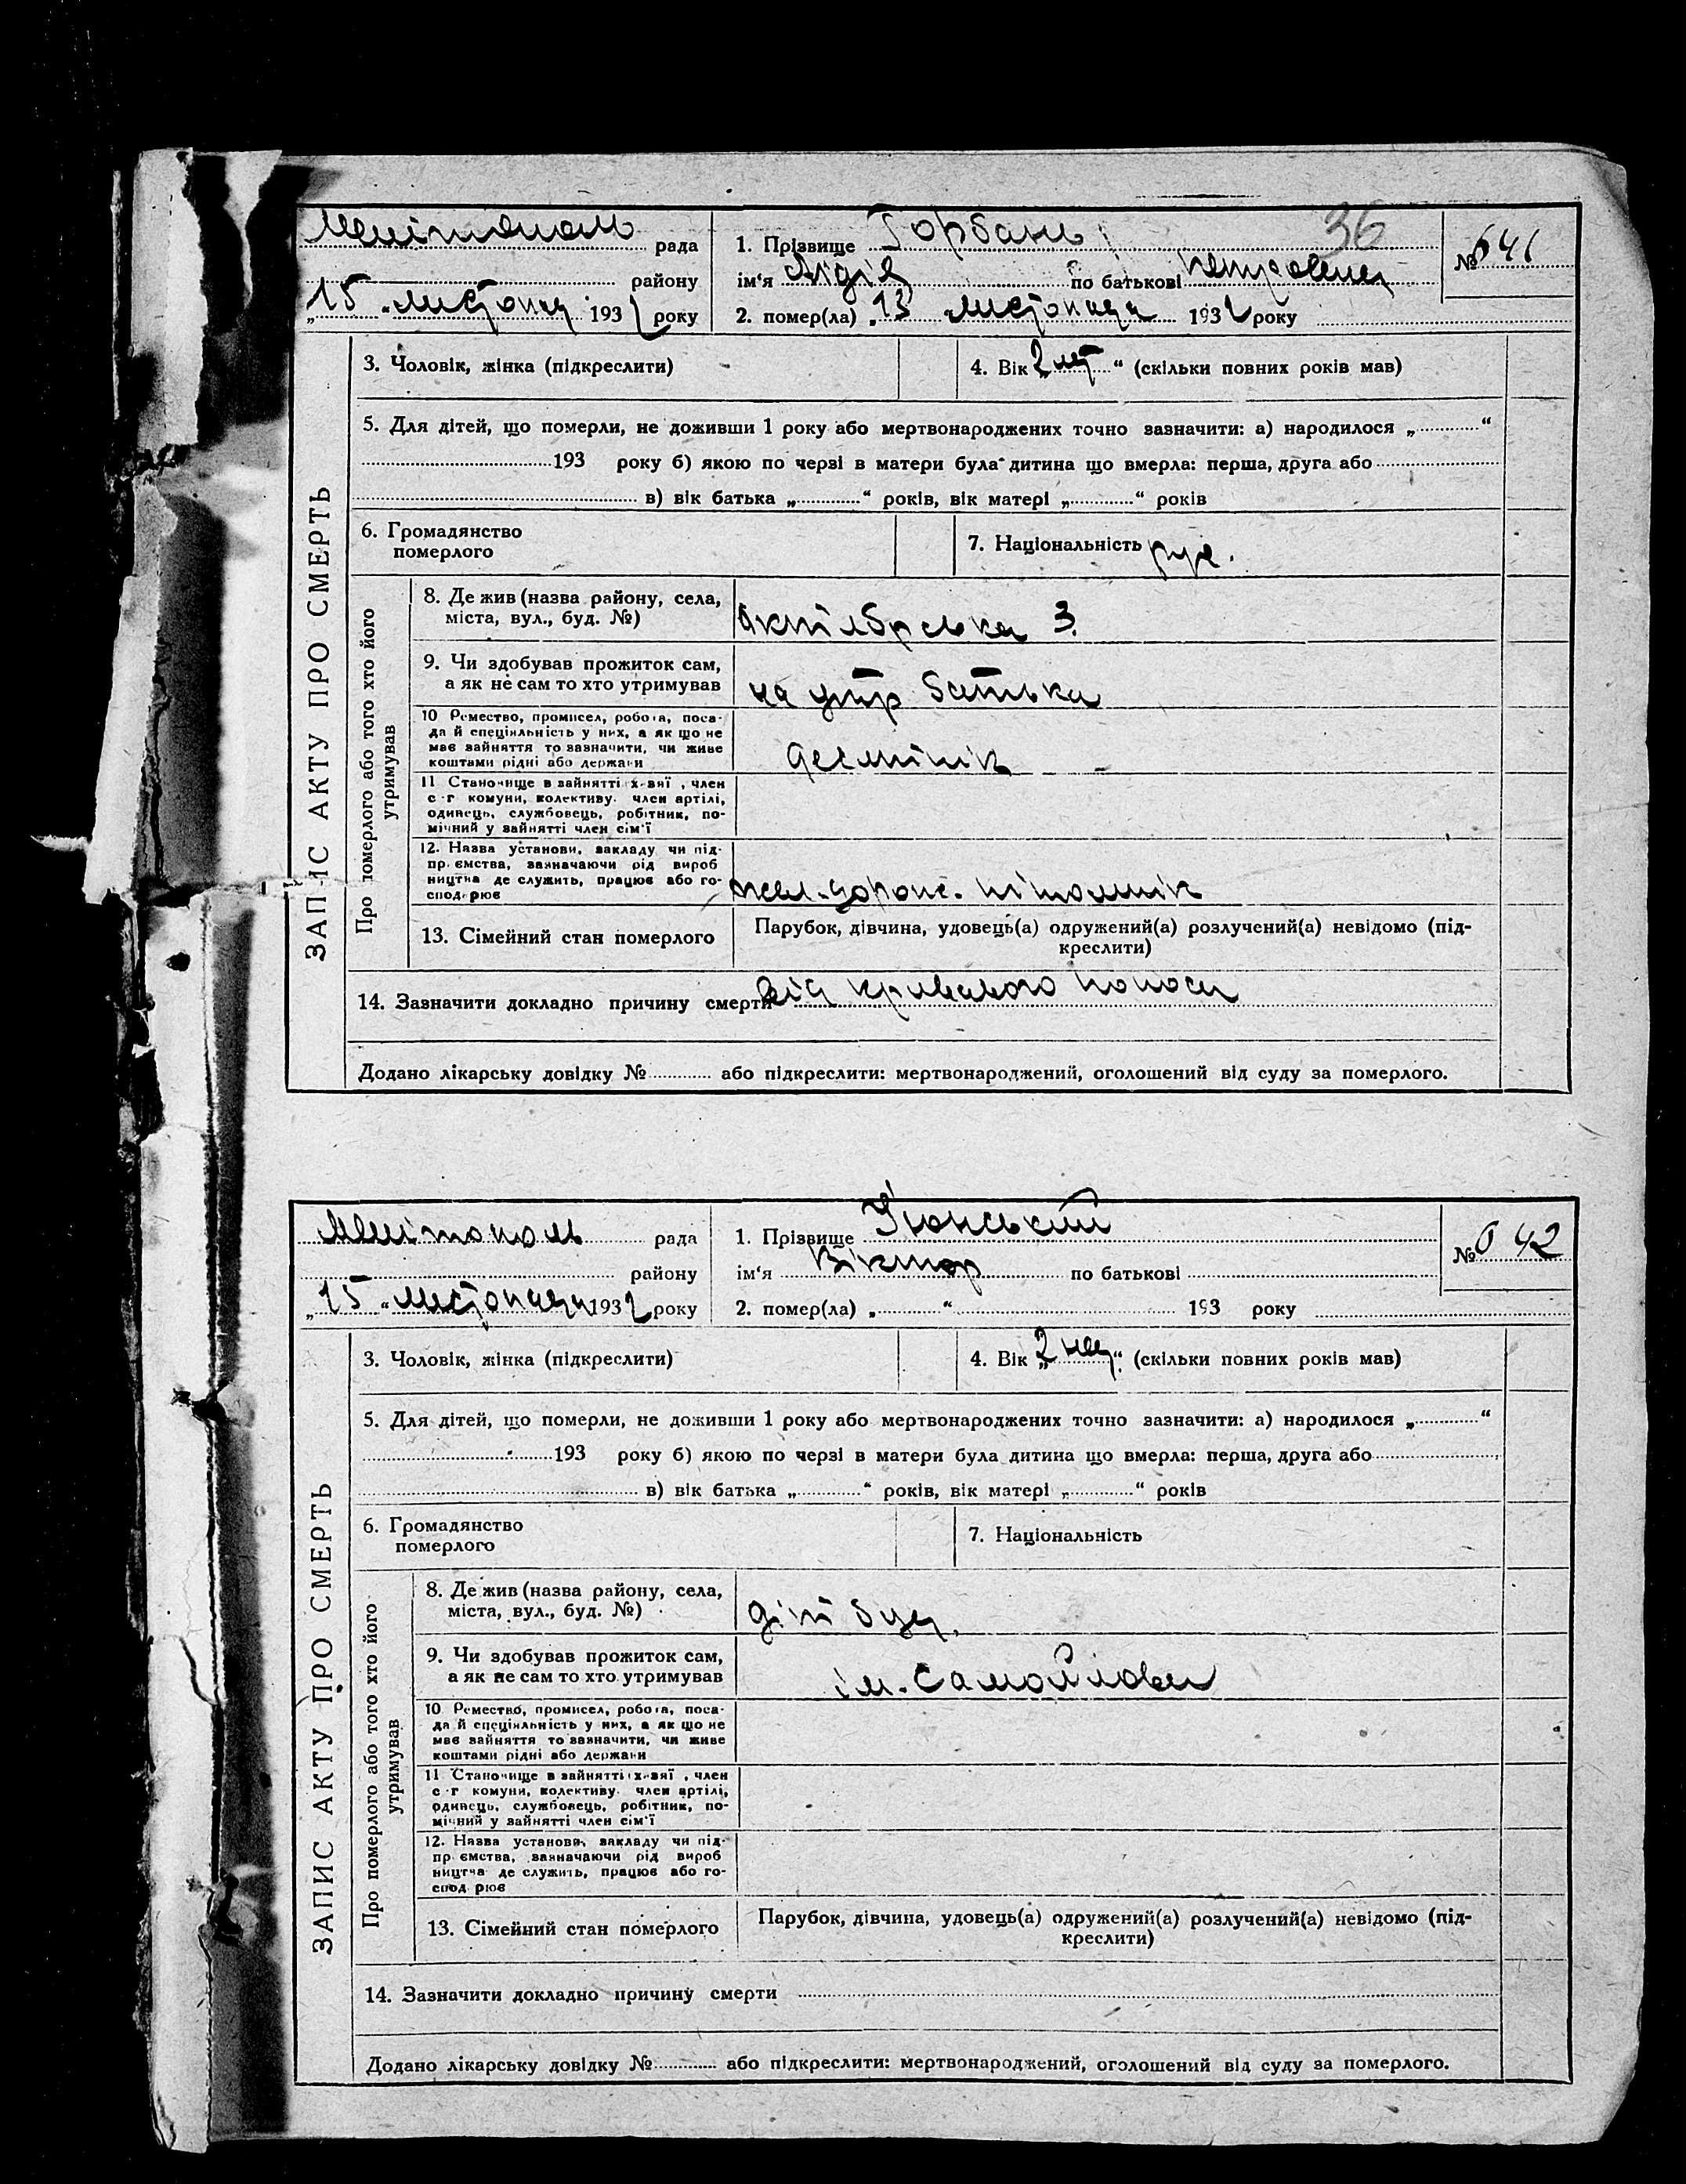 36
Мелітополь рада
1. Прізвище Горбань
№ 641
району
ім‘я Лідія по батькові
„15“ листопад 1932 року
2. помер(ла) „13 листопада 1932 року
ЗАПИС АКТУ ПРО СМЕРТЬ
3. Чоловік, жінка (підкреслити)
4. Вік „2 “ (скільки повних років мав)
5. Для дітей, що померли, не доживши 1 року або мертвонароджених точно зазначити: а) народилося „ “
193 року б) якою по черзі в матери була дитина що вмерла: перша, друга або
в) вік батька „ “ років, вік матері „ “ років
6. Громадянство
померлого
7. Національність рус.
Про померлого або того хто його
утримував
8. Де жив (назва району, села,
міста, вул., буд. №)
3
9. Чи здобував прожиток сам,
а як не сам то хто утримував
на утр батька
10 Ремество, промисел, робота, поса-
да й спеціяльність у них, а як що не
має зайняття то зазначити, чи живе
коштами рідні або держави
11 Становище в зайнятті х-вяї , член
с-г комуни, колективу член артілі,
одинець, службовець, робітник, по-
мічний у зайнятті член сім‘ї
12. Назва установи, закладу чи під-
пр ємства, зазначаючи рід вироб
ництва де служить, працює або го-
спод рює
13. Сімейний стан померлого
Парубок, дівчина, удовець(а) одружений(а) розлучений(а) невідомо (під-
креслити)
14. Зазначити докладно причину смерти від кривавого поноса
Додано лікарську довідку № або підкреслити: мертвонароджений, оголошений від суду за померлого.
Мелітополь рада
1. Прізвище
№ 642
району
ім‘я Віктор по батькові
„15“ листопада 1932 року
2. помер(ла) „ “ 193 року
ЗАПИС АКТУ ПРО СМЕРТЬ
3. Чоловік, жінка (підкреслити)
4. Вік „2 “ (скільки повних років мав)
5. Для дітей, що померли, не доживши 1 року або мертвонароджених точно зазначити: а) народилося „ “
193 року б) якою по черзі в матери була дитина що вмерла: перша, друга або
в) вік батька „ “ років, вік матері „ “ років
6. Громадянство
померлого
7. Національність
Про померлого або того хто його
утримував
8. Де жив (назва району, села,
міста, вул., буд. №)
9. Чи здобував прожиток сам,
а як не сам то хто утримував
ім. Самойлова
10 Ремество, промисел, робота, поса-
да й спеціяльність у них, а як що не
має зайняття то зазначити, чи живе
коштами рідні або держави
11 Становище в зайнятті х-вяї , член
с-г комуни, колективу член артілі,
одинець, службовець, робітник, по-
мічний у зайнятті член сім‘ї
12. Назва установи, закладу чи під-
пр ємства, зазначаючи рід вироб
ництва де служить, працює або го-
спод рює
13. Сімейний стан померлого
Парубок, дівчина, удовець(а) одружений(а) розлучений(а) невідомо (під-
креслити)
14. Зазначити докладно причину смерти
Додано лікарську довідку № або підкреслити: мертвонароджений, оголошений від суду за померлого.